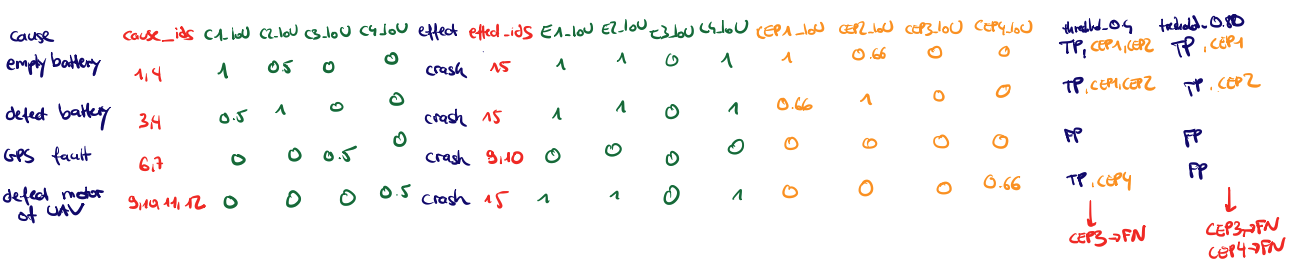 cause cause_ids C1_IoU C2_IoU C3_IoU C4_IoU effect effect_ids E1_IoU E2_IoU E3_IoU C4_IoU CEP1_IoU CEP2_IoU CEP3_IoU CEP4_IoU threshold_0.4 threshold_0.80
empty battery 1,4 1 0.5 0 0 crash 15 1 1 0 1 1 0.66 0 0 TP, CEP1, CEP2 TP, CEP1
defect battery 3,4 0.5 1 0 0 crash 15 1 1 0 1 0.66 1 0 0 TP, CEP1, CEP2 TP, CEP2
GPS fault 6,7 0 0 0.5 0 crash 9,10 0 0 0 0 0 0 0 0 FP FP
defect motor 9,10,11,12 0 0 0 0.5 crash 15 1 1 0 1 0 0 0 0.66 TP, CEP4 FP
of UAV
CEP3→FN CEP3→FN
CEP4→FN